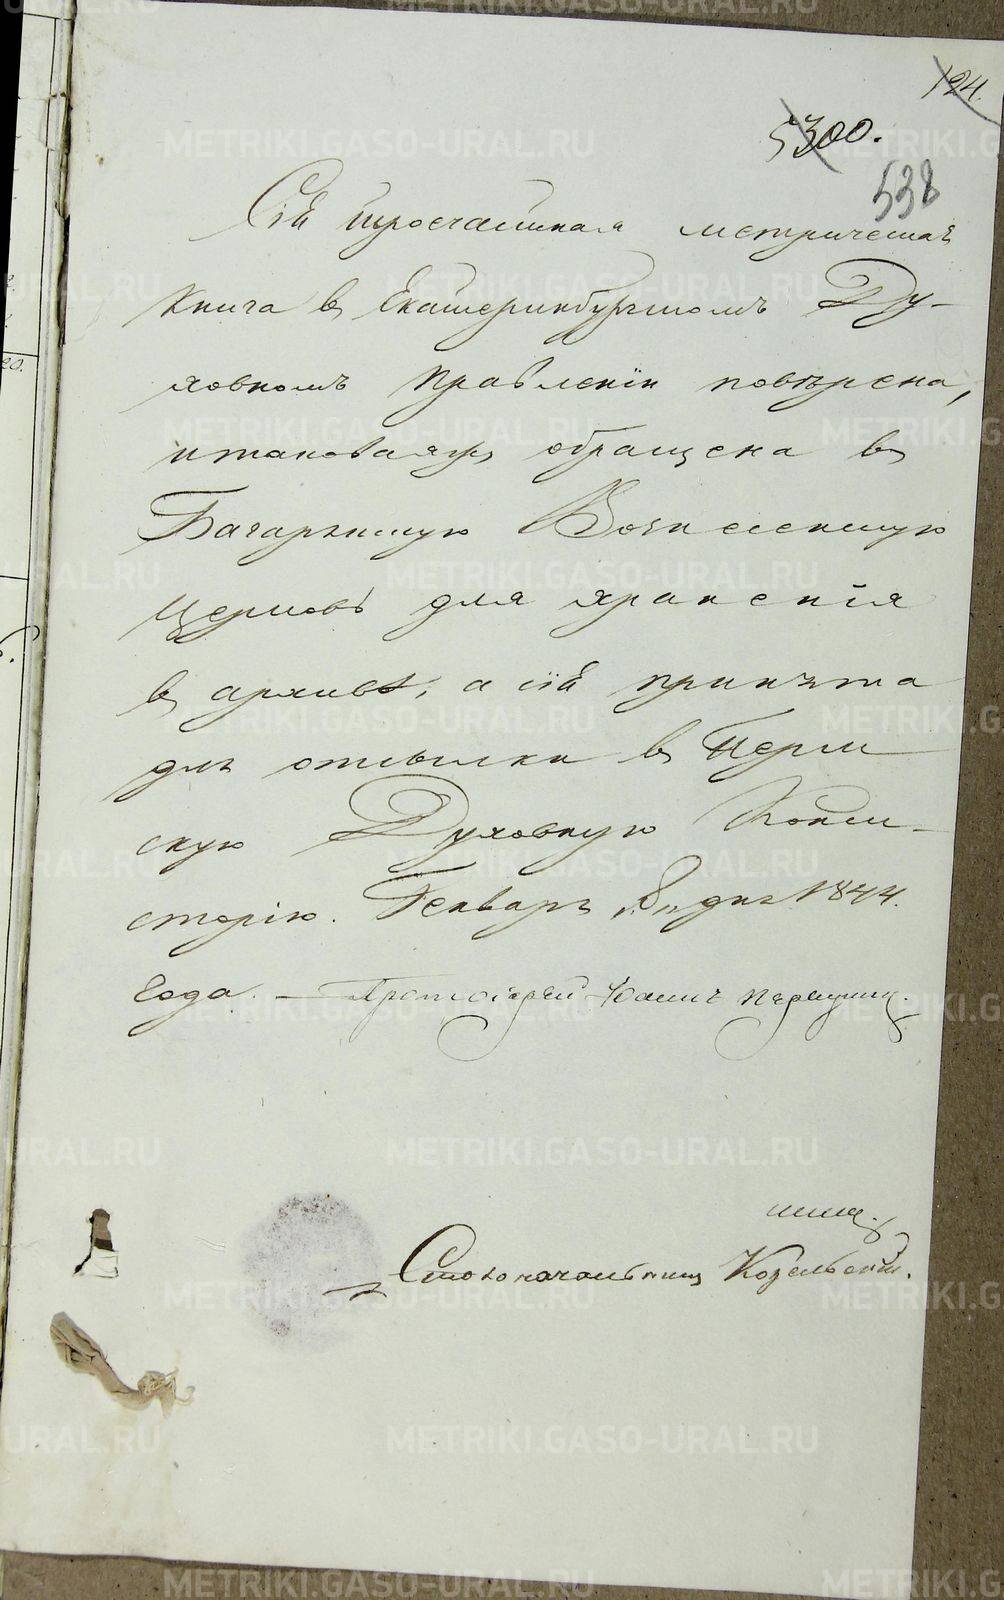 124.
5300.
538
Сія троечастная метрическая
книга въ Екатеринбургскомъ Ду-
ховномъ Правленіи повѣрена,
и таковаяжъ обращена въ
Багаряцкую Вознесенскую
Церковь для храненія
въ архивѣ, а сія принята
для отсылки въ Перм
скую Духовную Конси-
сторію. Генваря „8„ дня 1844.
Года. — Протоіерей Іоаннъ
Столоначальникъ Козельскій.
METRIKI.GASO-URAL.RU